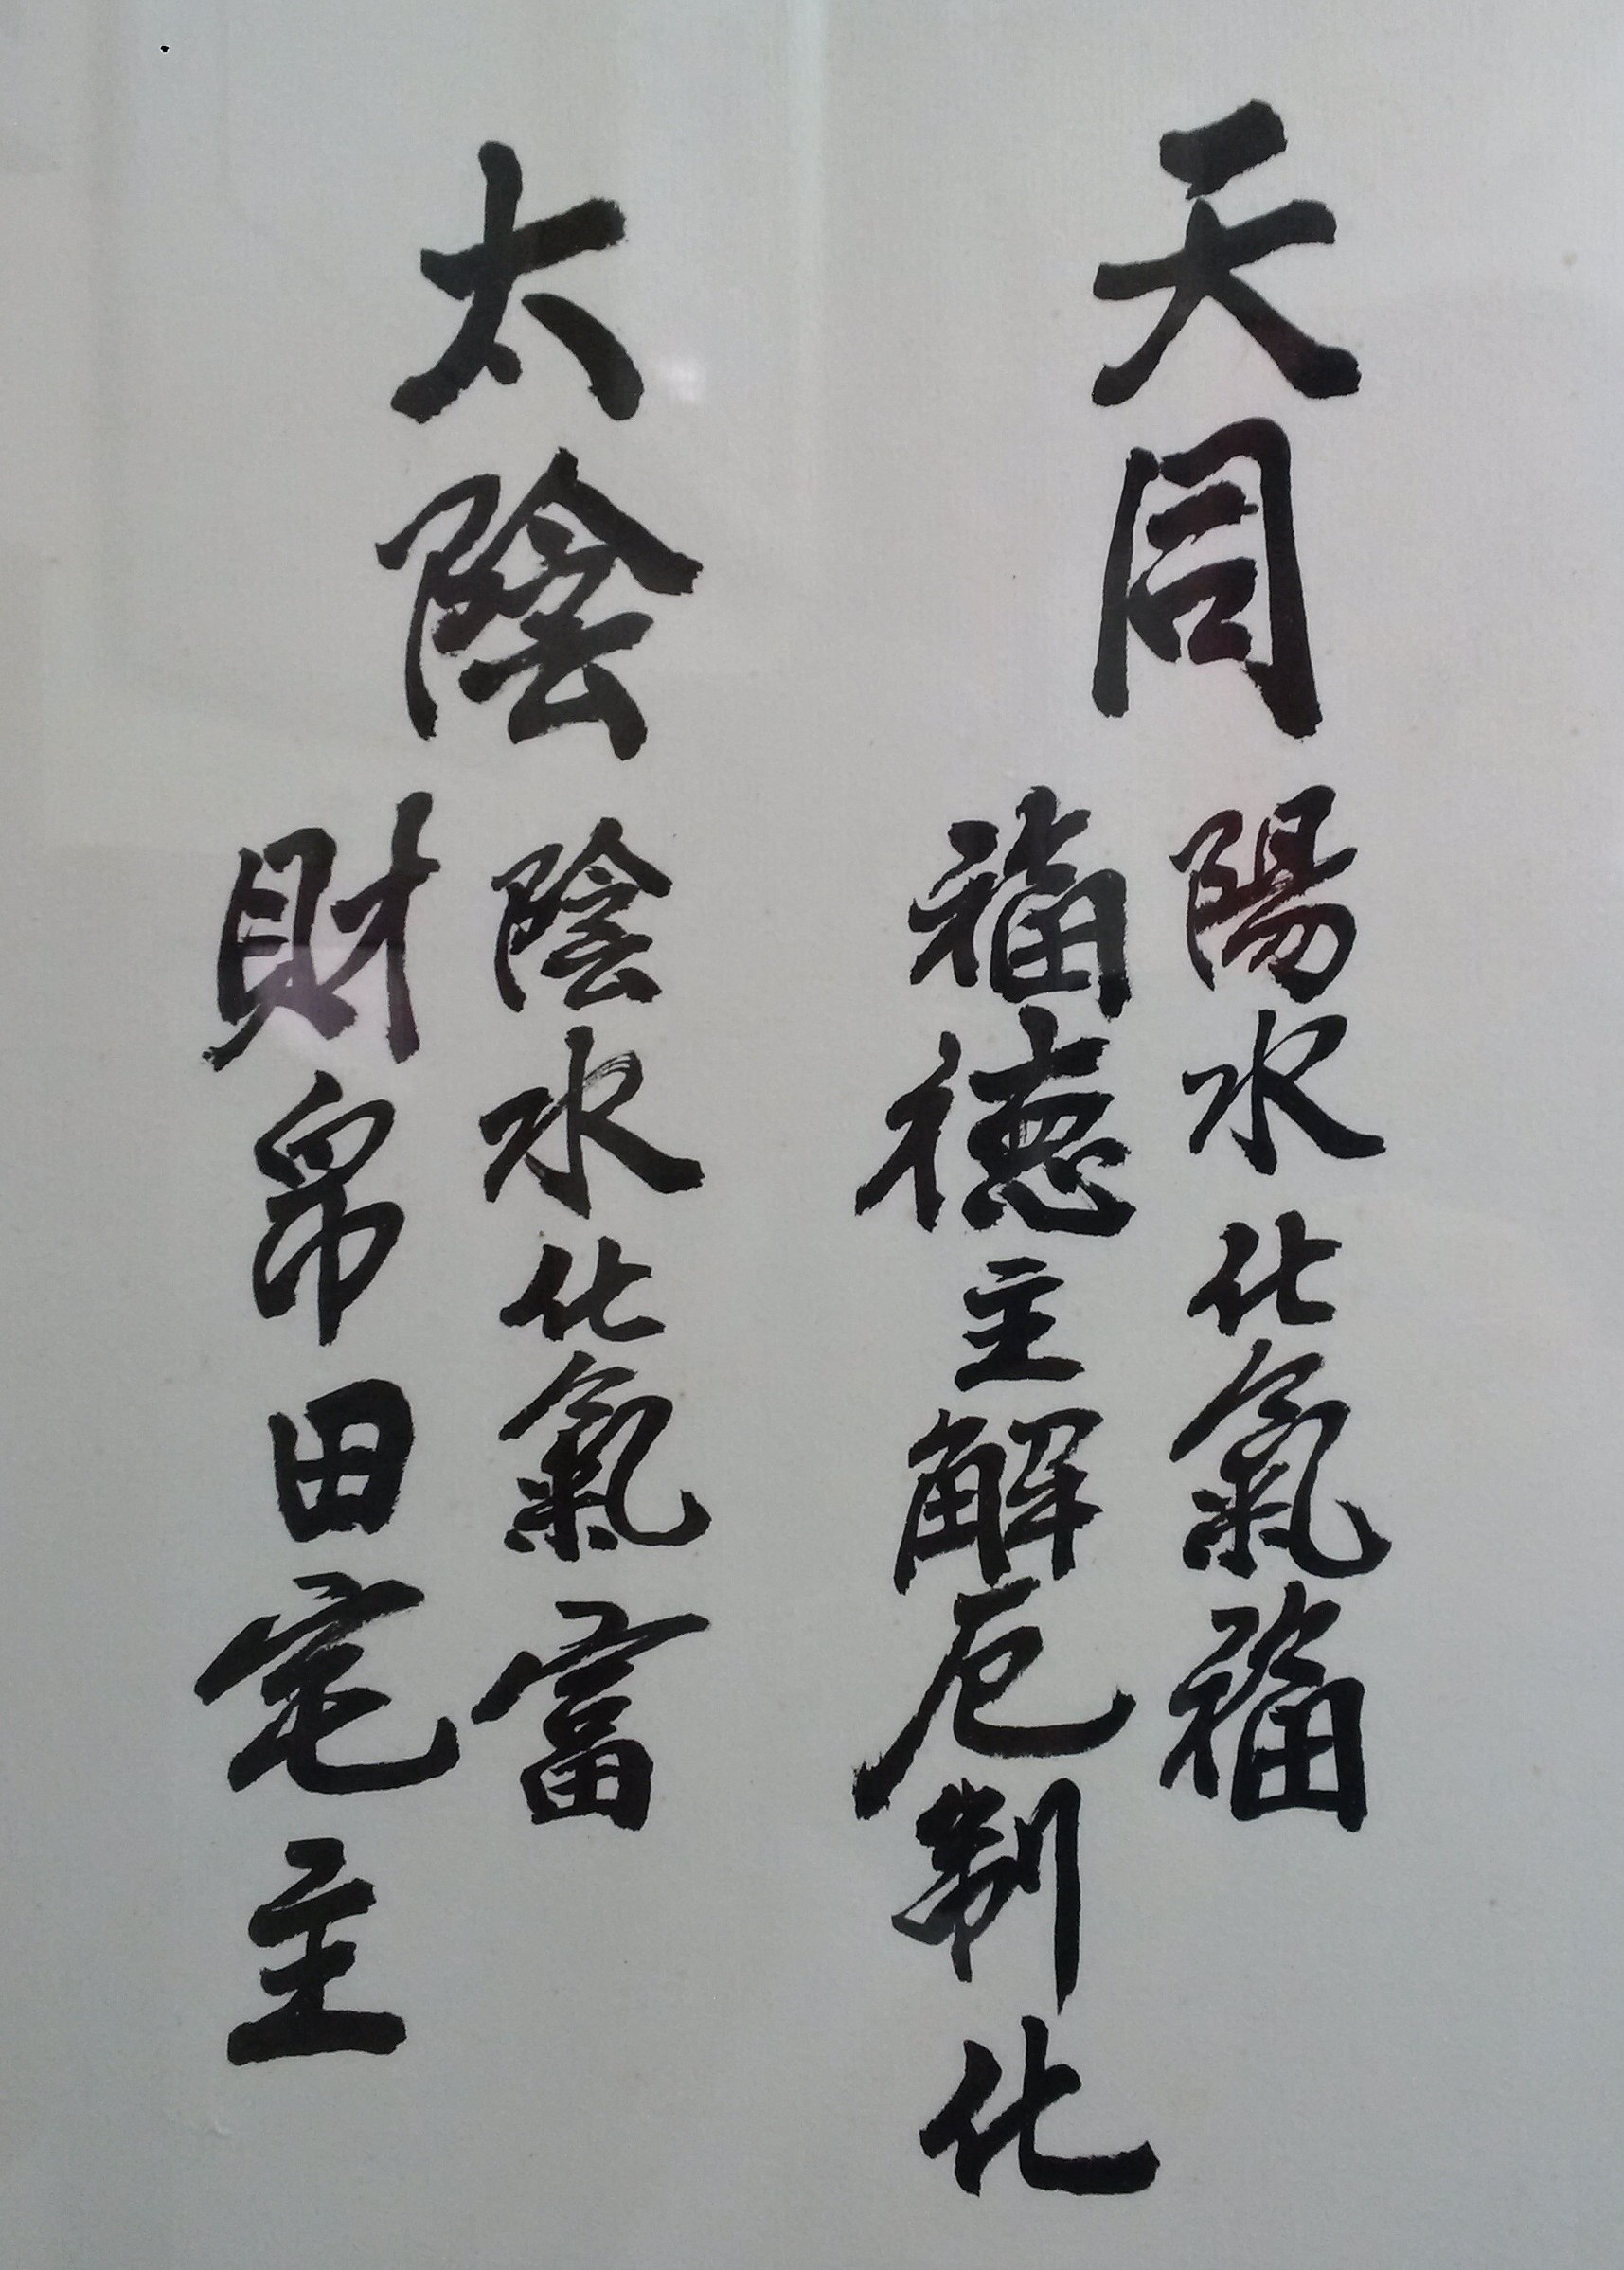 天同
陽水化氣福
福德主解厄制化
太陰
陰水化氣富
財帛田宅主